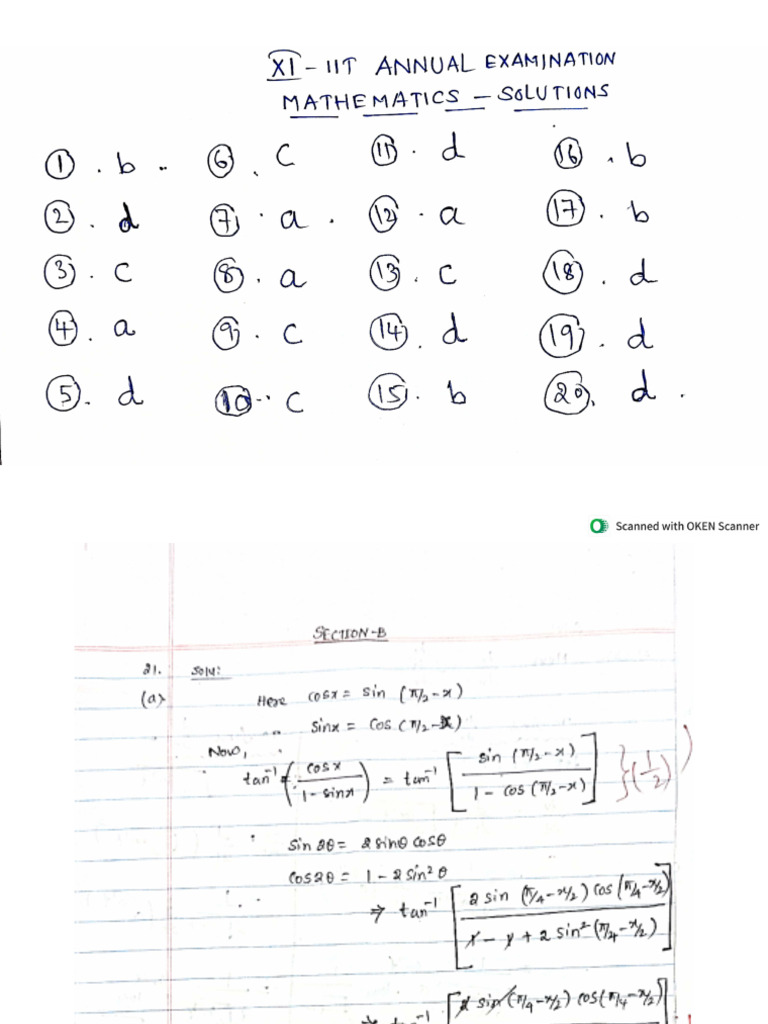 XI - IIT ANNUAL EXAMINATION
MATHEMATICS - SOLUTIONS
① . b . . ⑥ . c ⑪ . d ⑯ . b
② . d ⑦ . a . ⑫ . a ⑰ . b
③ . c ⑧ . a ⑬ . c ⑱ . d
④ . a ⑨ . c ⑭ . d ⑲ . d
⑤ . d ⑩ . . c ⑮ . b ⑳ . d .
Scanned with OKEN Scanner
SECTION-B
21. Solu:
(a) Here cosx = sin (π/2-x)
sinx = cos (π/2-x)
Now,
tan⁻¹(cosx / 1-sinx) = tan⁻¹[sin (π/2-x) / 1 - cos (π/2-x)] } (1/2)
sin 2θ = 2 sinθ cosθ
cos2θ = 1 - 2 sin² θ
⇒ tan⁻¹[2 sin (π/4-x/2) cos (π/4-x/2) / 1 - 1 + 2 sin² (π/4-x/2)]
⇒ tan⁻¹[2 sin (π/4-x/2) cos (π/4-x/2)